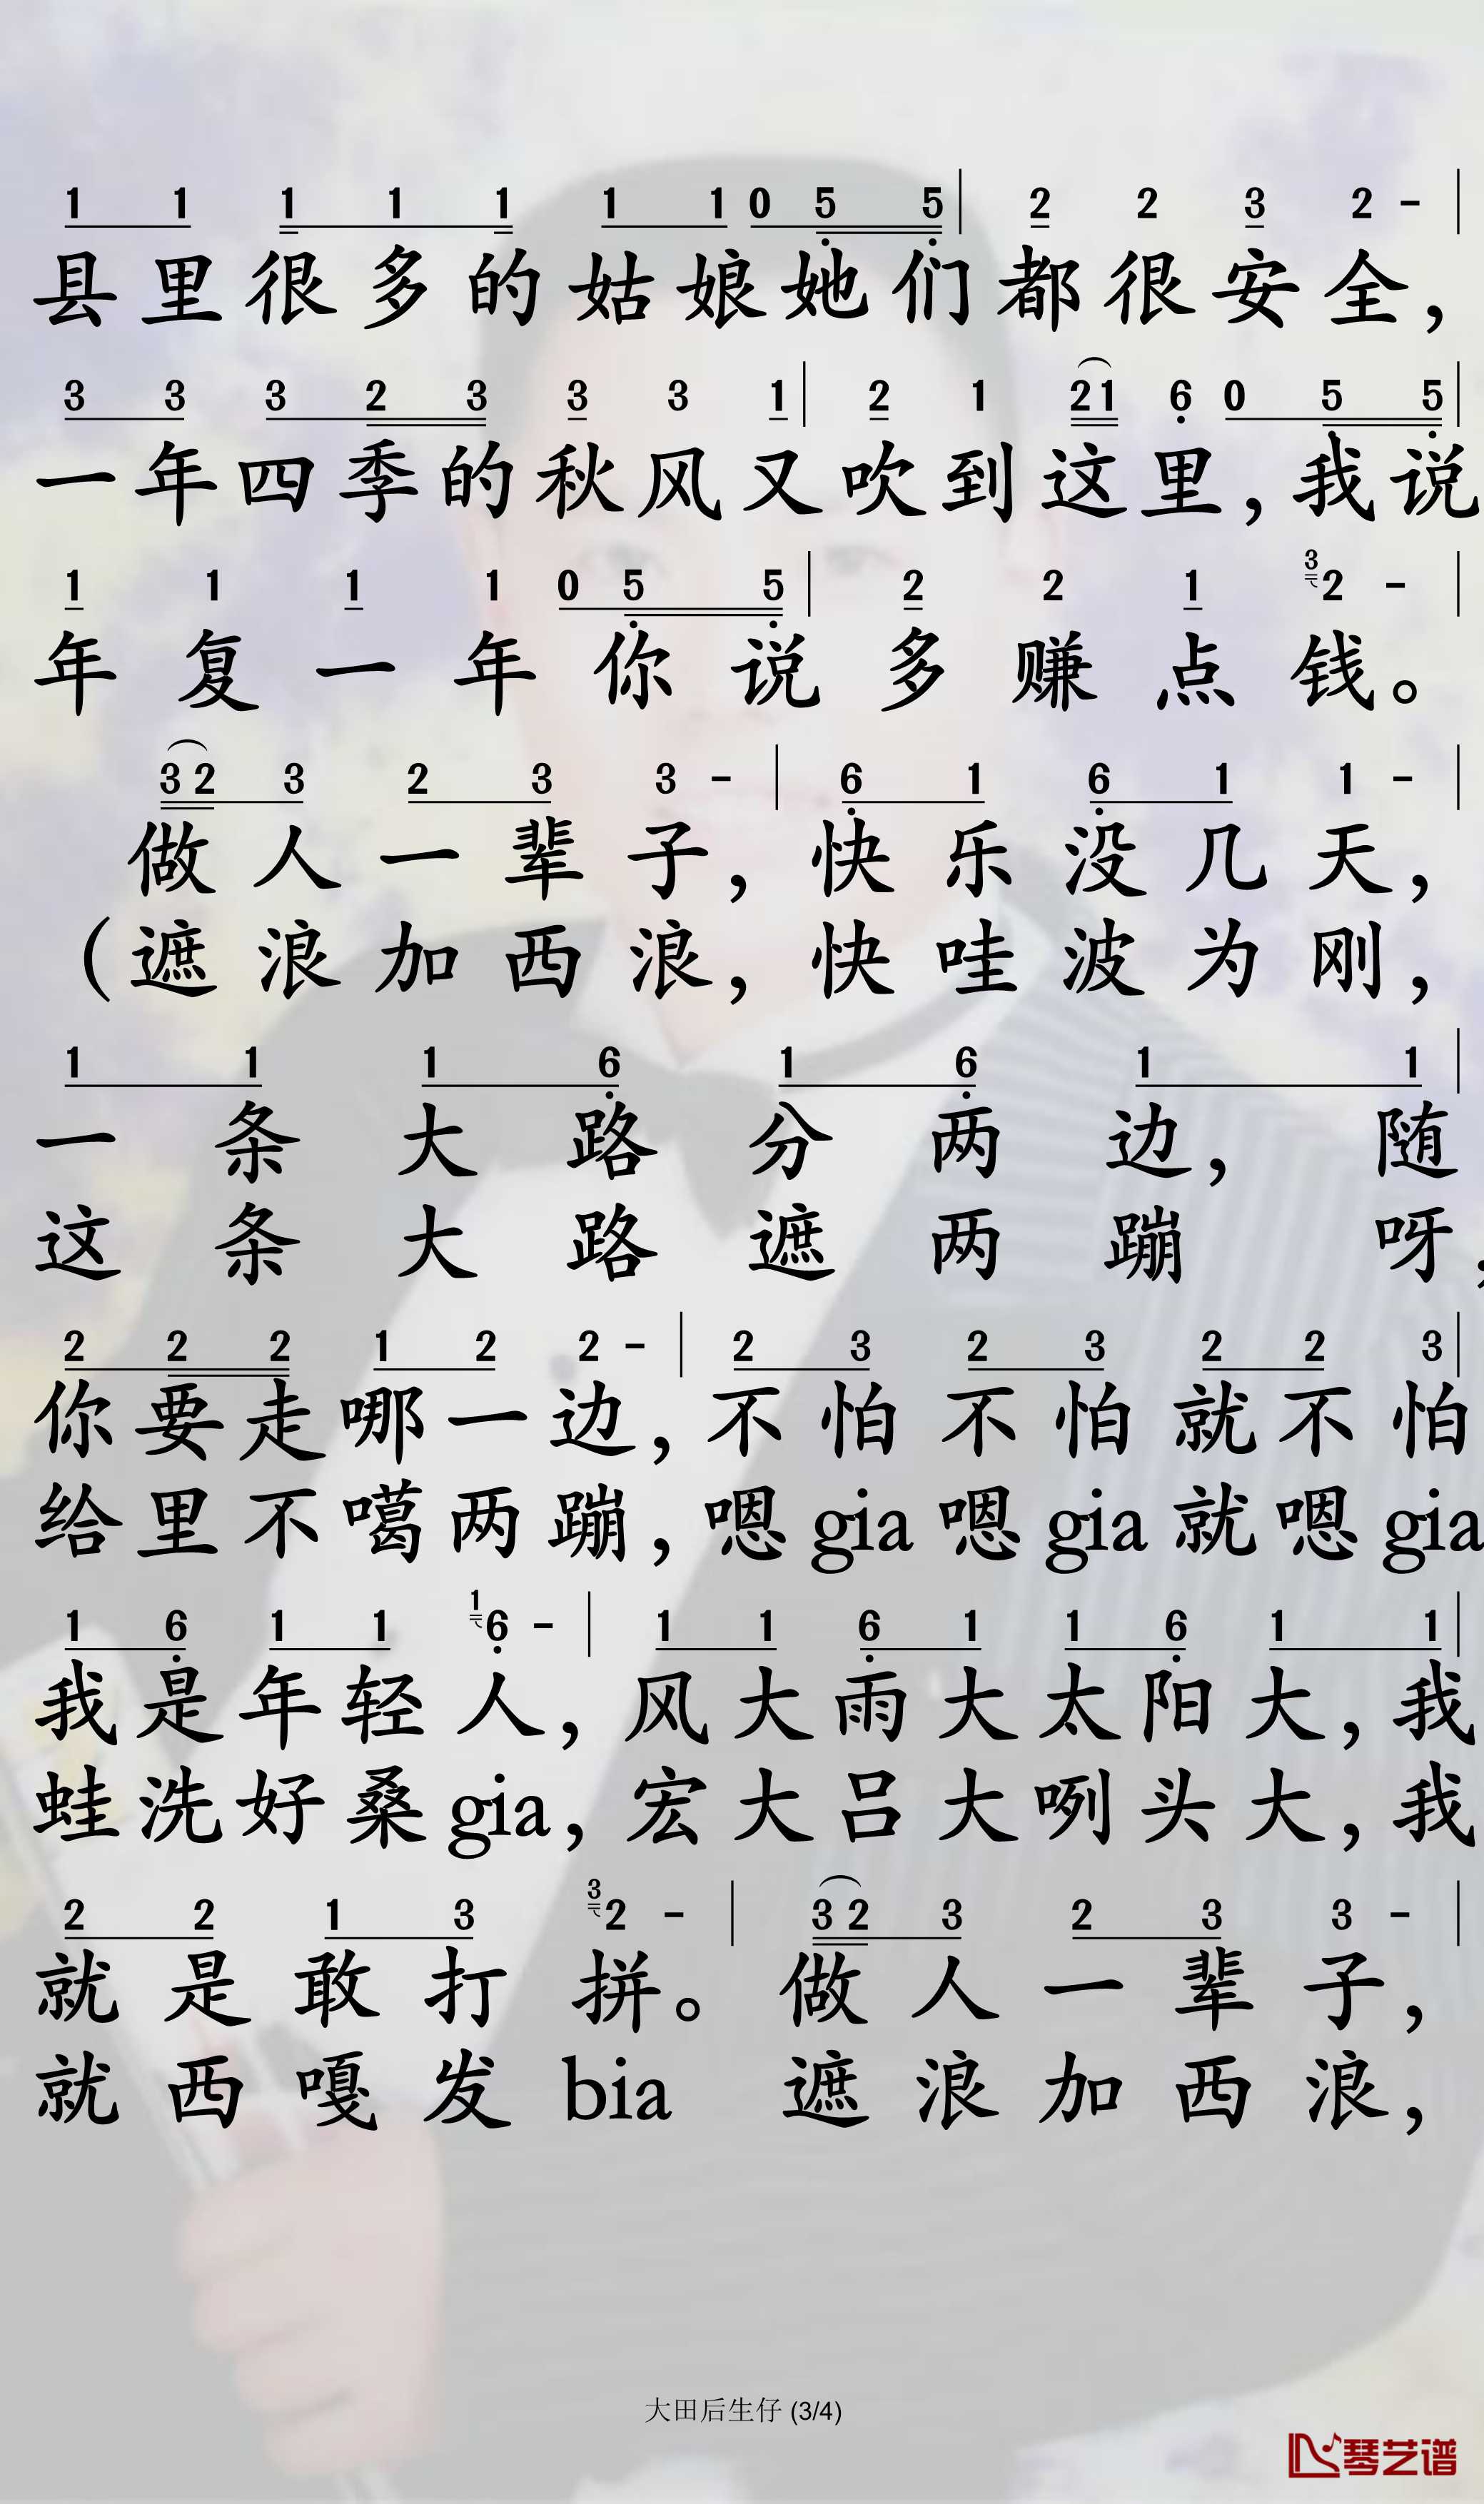 1 1 1 1 1 1 1 0 5 5 | 2 2 3 2 - |
县里很多的姑娘她们都很安全，
3 3 3 2 3 3 3 1 | 2 1 2 1 6 0 5 5 |
一年四季的秋风又吹到这里，我说
1 1 1 1 0 5 5 | 2 2 1 3 2 - |
年复一年你说多赚点钱。
3 2 3 2 3 3 - | 6 1 6 1 1 - |
做人一辈子，快乐没几天，
（遮浪加西浪，快哇波为刚，
1 1 1 6 1 6 1 1 |
一条大路分两边，随
这条大路遮两蹦呀，
2 2 2 1 2 2 - | 2 3 2 3 2 2 3 |
你要走哪一边，不怕不怕就不怕
给里不噶两蹦，嗯gia嗯gia就嗯gia
1 6 1 1 1 6 - | 1 1 6 1 1 6 1 1 |
我是年轻人，风大雨大太阳大，我
蛙洗好桑gia，宏大吕大咧头大，我
2 2 1 3 3 2 - | 3 2 3 2 3 3 - |
就是敢打拼。做人一辈子，
就西嘎发bia 遮浪加西浪，
大田后生仔 (3/4)
琴艺谱